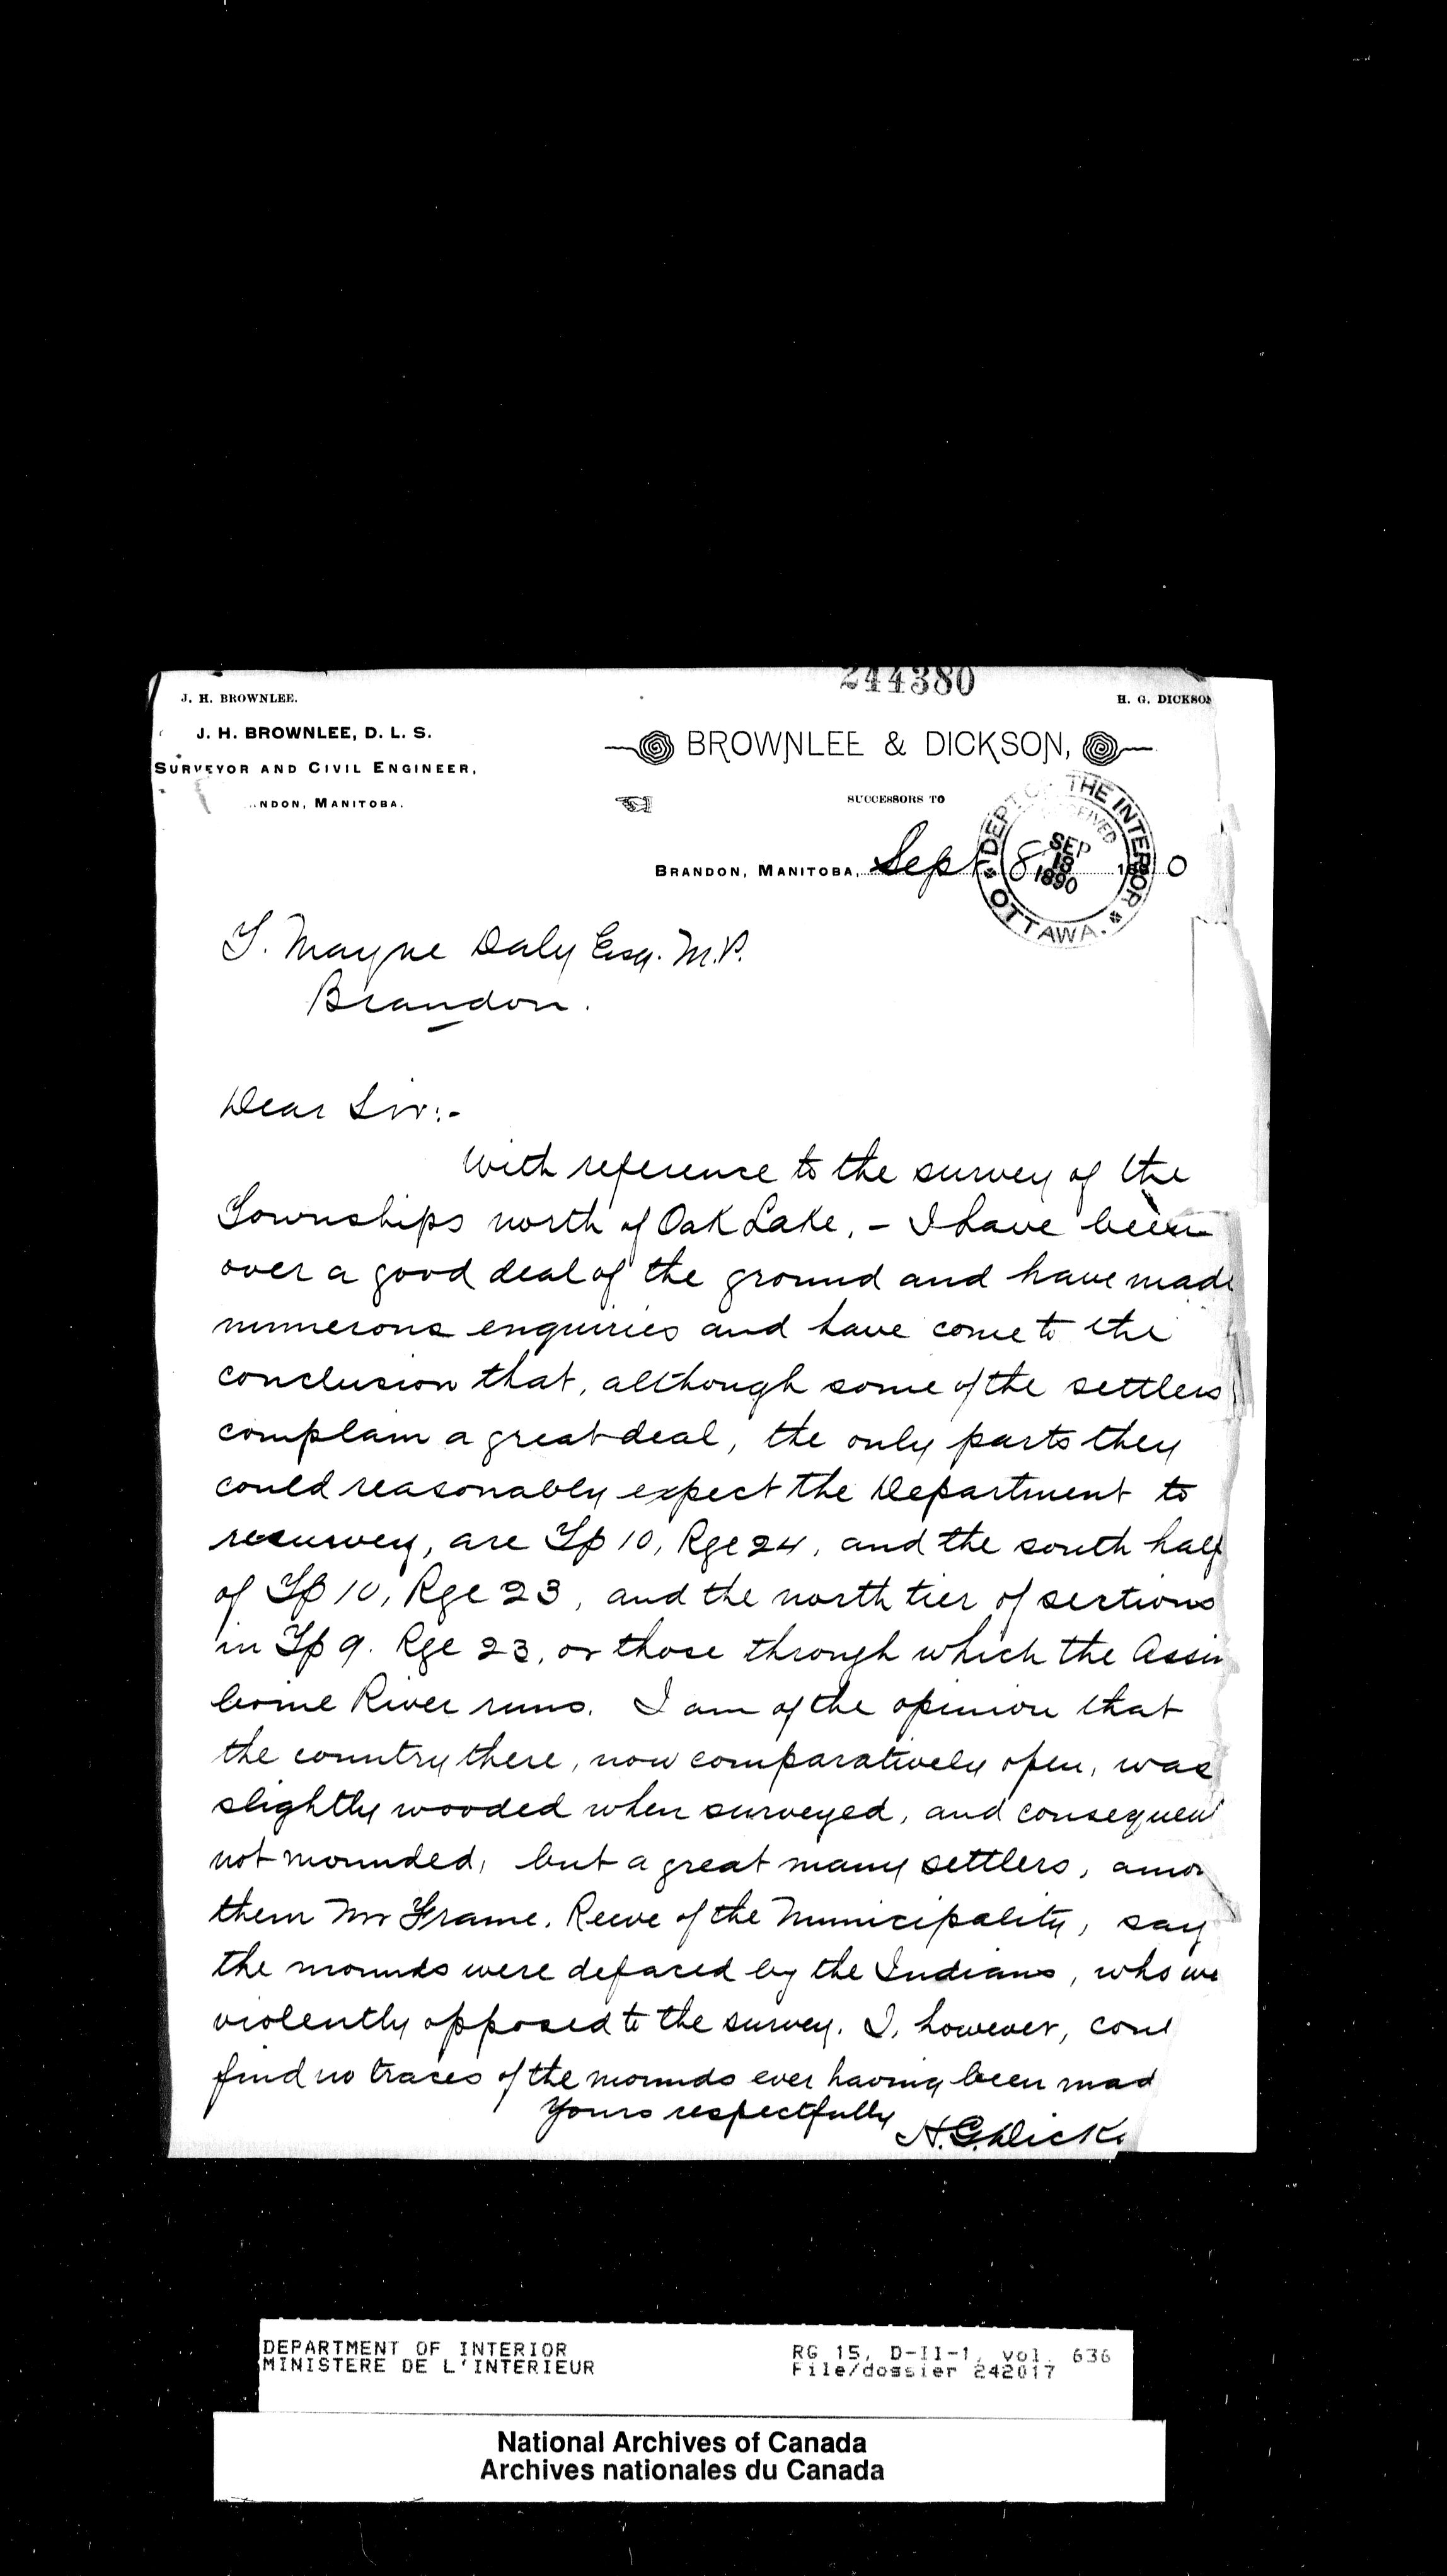 244380
J. H. BROWNLEE.
H. G. DICKSON
J. H. BROWNLEE, D. L. S.
SURVEYOR AND CIVIL ENGINEER,
NDON, MANITOBA.
BROWNLEE & DICKSON,
SUCCESSORS TO
DEPT OF THE INTERIOR
RECEIVED
SEP
18
1890
OTTAWA.
BRANDON, MANITOBA, Sept 8 1890
T. Mayne Daly Esq. M.P.
Brandon.
Dear Sir:-
With reference to the survey of the
Townships north of Oak Lake, - I have been
over a good deal of the ground and have made
numerous enquiries and have come to the
conclusion that, although some of the settlers
complain a great deal, the only parts they
could reasonably expect the Department to
resurvey, are Tp 10, Rge 24, and the south half
of Tp 10, Rge 23, and the north tier of sections
in Tp 9. Rge 23, or those through which the Assin
boine River runs. I am of the opinion that
the country there, now comparatively open, was
slightly wooded when surveyed, and consequent
not mounded, but a great many settlers, amon
them Mr Frame, Reeve of the Municipality, say
the mounds were defaced by the Indians, who we
violently opposed to the survey. I, however, coul
find no traces of the mounds ever having been mad
Yours respectfully
H. G. Dicks
DEPARTMENT OF INTERIOR
MINISTERE DE L'INTERIEUR
RG 15, D-II-1, vol. 636
File/dossier 242017
National Archives of Canada
Archives nationales du Canada